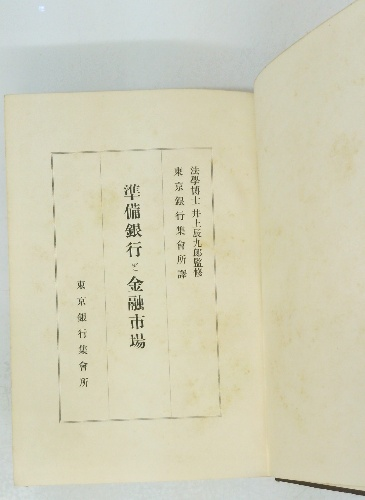 法學博士 井上辰九郎監修
東京銀行集會所譯
準備銀行と金融市場
東京銀行集會所